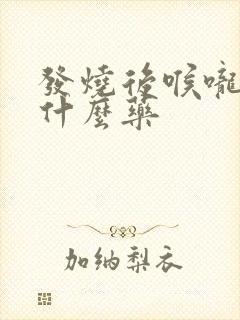 發燒後喉嚨
什麼藥
加納梨衣